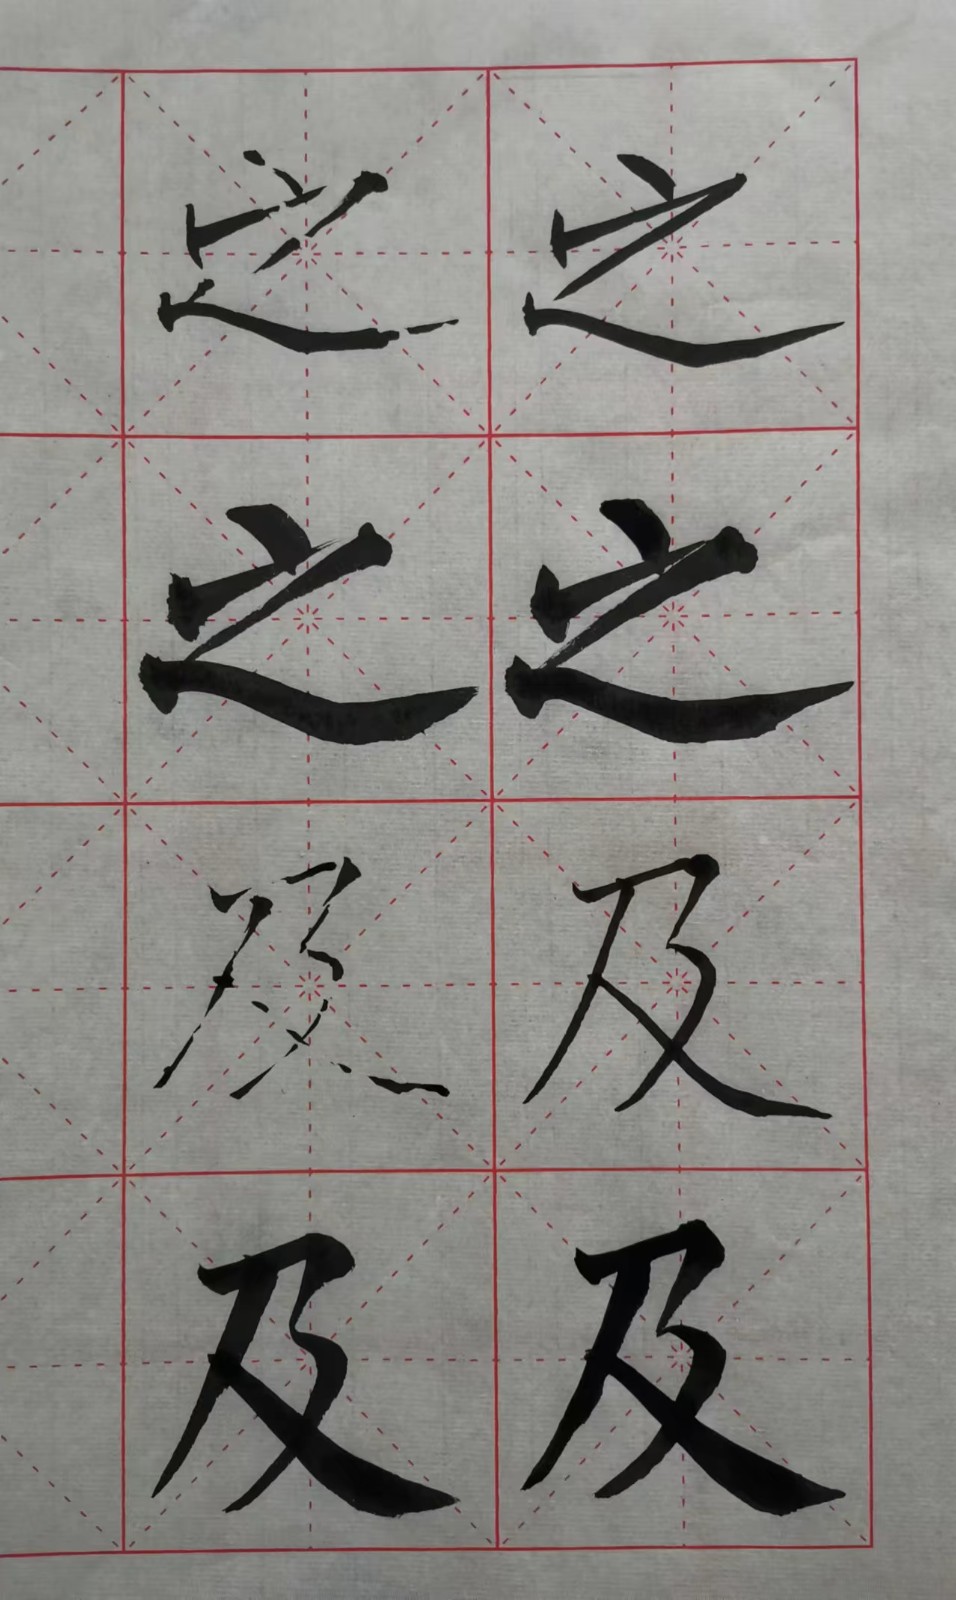 之之
之之
及及
及及